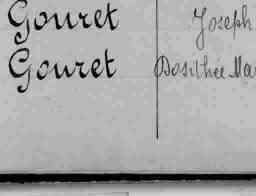 Gouret Joseph
Gouret Dosithée Ma